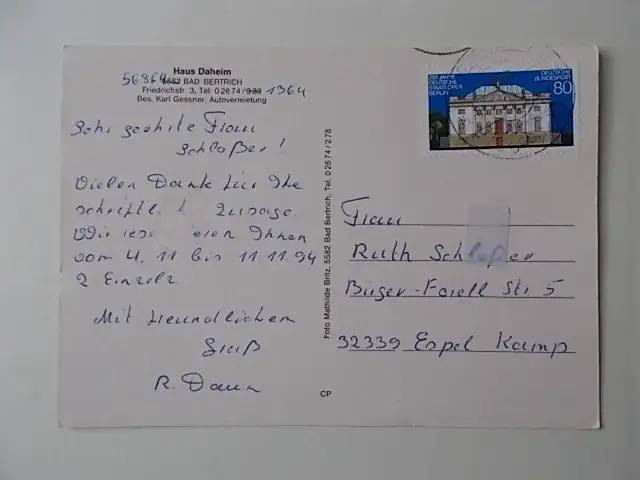 Haus Daheim
56864
5582 BAD BERTRICH
Friedrichstr. 3, Tel. 02674/323 1364
Bes. Karl Gessner, Autovermietung
Sehr geehrte Frau
Schloßer!
Vielen Dank für Ihe
schriftl. Zusage.
Wir Ihnen
vom 4. 11 bis 11.11.94
2 Einzelz
Mit freundlichem
Gruß
R. Daun
Foto Mathilde Britz, 5582 Bad Bertrich, Tel. 02674/278
CP
250 JAHRE
DEUTSCHE
STAATSOPER
BERLIN
DEUTSCHE
BUNDESPOST
80
Frau
Ruth Schloßer
Bürger-Forell Str. 5
32339 Espel Kamp